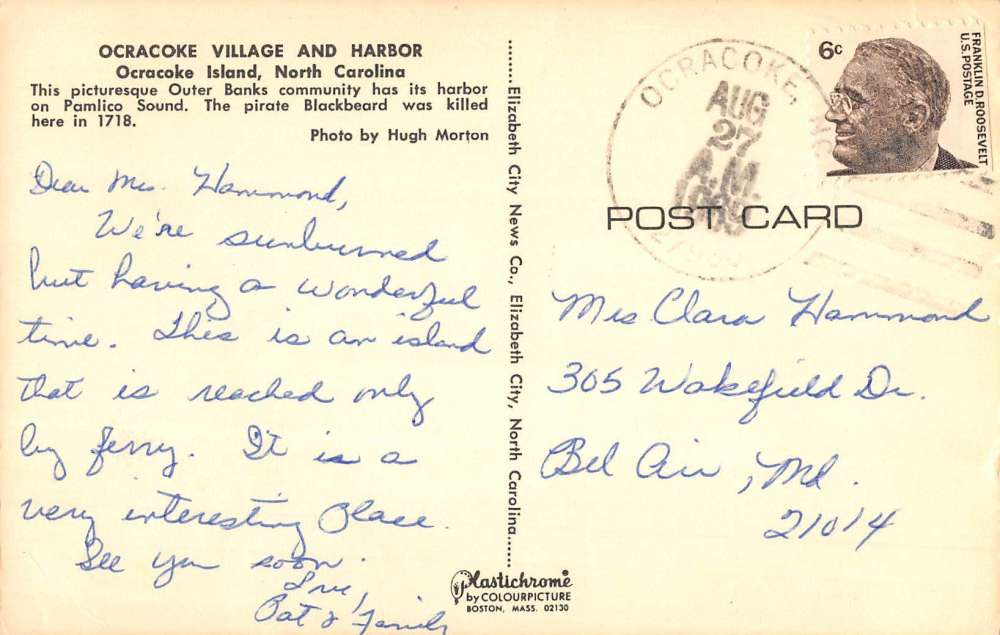 OCRACOKE VILLAGE AND HARBOR
Ocracoke Island, North Carolina
This picturesque Outer Banks community has its harbor
on Pamlico Sound. The pirate Blackbeard was killed
here in 1718.
Photo by Hugh Morton
Dear Mrs. Hammond,
We're sunburned
but having a wonderful
time. This is an island
that is reached only
by ferry. It is a
very interesting place.
See you soon.
Love,
Pat & Family
Elizabeth City News Co., Elizabeth City, North Carolina
Plastichrome
by COLOURPICTURE
BOSTON, MASS. 02130
OCRACOKE,
AUG
27
A.M.
6c
FRANKLIN D. ROOSEVELT
U.S. POSTAGE
POST CARD
Mrs Clara Hammond
305 Wakefield Dr.
Bel Air, Md.
21014